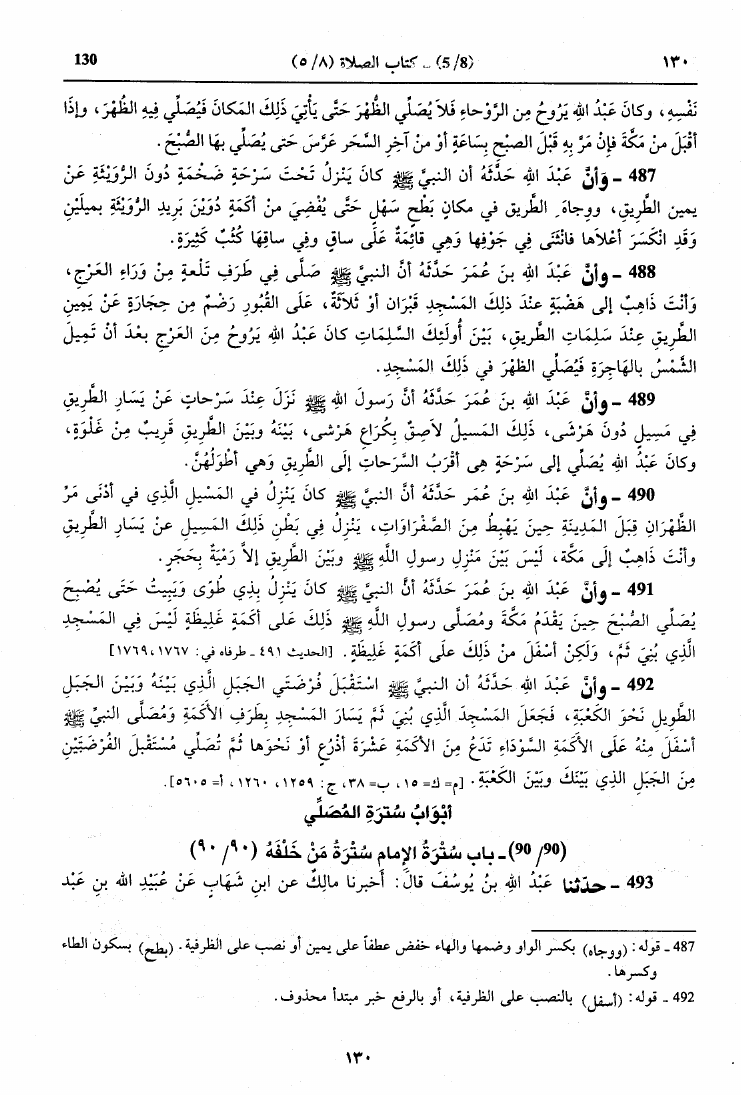 ١٣٠ (5/8) ـ كتاب الصلاة (٥/٨) 130
نَفْسِهِ، وكانَ عَبْدُ الله يَرُوحُ مِن الرَّوْحاءِ فَلاَ يُصَلِّي الظُّهْرَ حَتَّى يَأْتِيَ ذَلِكَ المَكانَ فَيُصَلِّي فِيهِ الظُّهْرَ، وإذَا
أقْبَلَ مِنْ مَكَّةَ فإنْ مَرَّ بِهِ قَبْلَ الصبْحِ بِساعَةٍ أوْ مِنْ آخِرِ السَّحَر عَرَّسَ حَتى يُصَلِّي بها الصُّبْحَ.
487 ـ وَأنَّ عَبْدَ الله حَدَّثَهُ أن النبيَّ ﷺ كانَ يَنْزِلُ تَحْتَ سَرْحَةٍ ضَخْمَةٍ دُونَ الرُّوَيْثَةِ عَنْ
يمين الطَّرِيقِ، ووِجاهَ الطَّريق في مكانٍ بَطْحٍ سَهْلٍ حَتَّى يُفْضِيَ منْ أكَمَةٍ دُوَيْنَ بَرِيدِ الرُّوَيْثَةِ بِميلَيْنِ
وَقَدِ انْكَسَرَ أعْلاَها فانْثَنَى فِي جَوْفِها وَهِي قائِمَةٌ عَلَى ساقٍ وفي ساقِها كُثُبٌ كَثِيرَةٍ.
488 ـ وأنَّ عَبْدَ الله بنَ عُمَرَ حَدَّثَهُ أنَّ النبيَّ ﷺ صَلَّى فِي طَرَفِ تَلْعةٍ مِنْ وَرَاءِ العَرْجِ،
وَأنْتَ ذَاهِبٌ إلى هَضْبَةٍ عِنْدَ ذلِكَ المَسْجِدِ قَبْرَان أوْ ثَلاَثَةٌ، عَلَى القُبُورِ رَضْمٌ مِن حِجارَةٍ عَنْ يَمِينِ
الطَّريقِ عِنْدَ سَلِماتِ الطَّريقِ، بَيْنَ أُولَئِكَ السَّلِماتِ كانَ عَبْدُ الله يَرُوحُ مِنَ العَرْجِ بَعْدَ أنْ تَمِيلَ
الشَّمْسُ بالهاجِرَةِ فَيُصَلِّي الظهْرَ في ذَلِكَ المَسْجِدِ.
489 ـ وأنَّ عَبْدَ الله بنَ عُمَرَ حَدَّثَهُ أنَّ رَسولَ الله ﷺ نَزَلَ عِنْدَ سَرْحاتٍ عَنْ يَسَارِ الطَّرِيقِ
فِي مَسِيلٍ دُونَ هَرْشَى، ذَلِكَ المَسيلُ لاَصِقٌ بِكُرَاعِ هَرْشى، بَيْنَهُ وبَيْنَ الطَّرِيقِ قَرِيبٌ مِنْ غَلْوَةٍ،
وكانَ عَبْدُ الله يُصَلِّي إلى سَرْحَةٍ هِي أقْرَبُ السَّرَحاتِ إلَى الطَّرِيقِ وَهي أطْوَلُهُنَّ.
490 ـ وأنَّ عَبْدَ الله بنَ عُمَر حَدَّثَهُ أنَّ النبيَّ ﷺ كانَ يَنْزِلُ في المَسْيلِ الَّذِي في أدْنَى مَرِّ
الظَّهْرَانِ قِبَلَ المَدِينَةِ حِينَ يَهْبِطُ مِنَ الصَّفْرَاوَاتِ، يَنْزِلُ فِي بَطْنِ ذَلِكَ المَسِيلِ عنْ يَسَارِ الطَّريقِ
وأنْتَ ذَاهِبٌ إلَى مَكَّةَ، لَيْسَ بَيْنَ مَنْزِلِ رسولِ اللَّهِ ﷺ وبَيْنَ الطَّريقِ إلاَّ رَمْيَةٌ بِحَجَرٍ.
491 ـ وأنَّ عَبْدَ الله بنَ عُمَرَ حَدَّثَهُ أنَّ النبيَّ ﷺ كانَ يَنْزِلُ بِذِي طُوًى وَيَبِيتُ حَتَّى يُصْبِحَ
يُصَلِّي الصُّبْحَ حِينَ يَقْدَمُ مَكَّةَ ومُصَلَّى رسولِ اللَّهِ ﷺ ذَلِكَ عَلى أكَمَةٍ غَلِيظَةٍ لَيْسَ فِي المَسْجِدِ
الَّذِي بُنِيَ ثَمَّ، وَلَكِنْ أسْفَلَ منْ ذَلِكَ علَى أكَمَةٍ غَلِيظَةٍ. [الحديث ٤٩١ ـ طرفاه في: ١٧٦٧، ١٧٦٩]
492 ـ وأنَّ عَبْدَ الله حَدَّثَهُ أن النبيَّ ﷺ اسْتَقْبَلَ فُرْضَتَي الجَبَلِ الَّذِي بَيْنَهُ وَبَيْنَ الجَبَلِ
الطَّوِيلِ نَحْوَ الكَعْبَةِ، فَجَعَلَ المَسْجِدَ الَّذِي بُنِيَ ثَمَّ يَسَارَ المَسْجِدِ بِطَرَفِ الأكَمَةِ وَمُصَلَّى النبيِّ ﷺ
أسْفَلَ مِنْهُ عَلَى الأكَمَةِ السَّوْدَاءِ تَدَعُ مِنَ الأكَمَةِ عَشَرَةَ أذْرُعٍ أوْ نَحْوَها ثُمَّ تُصَلِّي مُسْتَقْبِلَ الفُرْضَتَيْنِ
مِنَ الجَبَلِ الذي بَيْنَكَ وبَيْنَ الكَعْبَةِ. [م= ك= ١٥، ب= ٣٨، ح: ١٢٥٩، ١٢٦٠، أ= ٥٦٠٥].
أبْوَابُ سُترَةِ المُصَلِّي
(90/90) ـ باب سُتْرَةُ الإمامِ سُتْرَةُ مَنْ خَلْفَهُ (٩٠/٩٠)
493 ـ حدّثنا عَبْدُ الله بنُ يُوسُفَ قالَ: أخبرنا مالِكٌ عن ابنِ شَهَابٍ عَنْ عُبَيْدِ الله بنِ عَبْدِ
487 ـ قوله: (ووجاه) بكسر الواو وضمها والهاء خفض عطفاً على يمين أو نصب على الظرفية. (بطح) بسكون الطاء
وكسرها.
492 ـ قوله: (أسفل) بالنصب على الظرفية، أو بالرفع خبر مبتدأ محذوف.
١٣٠